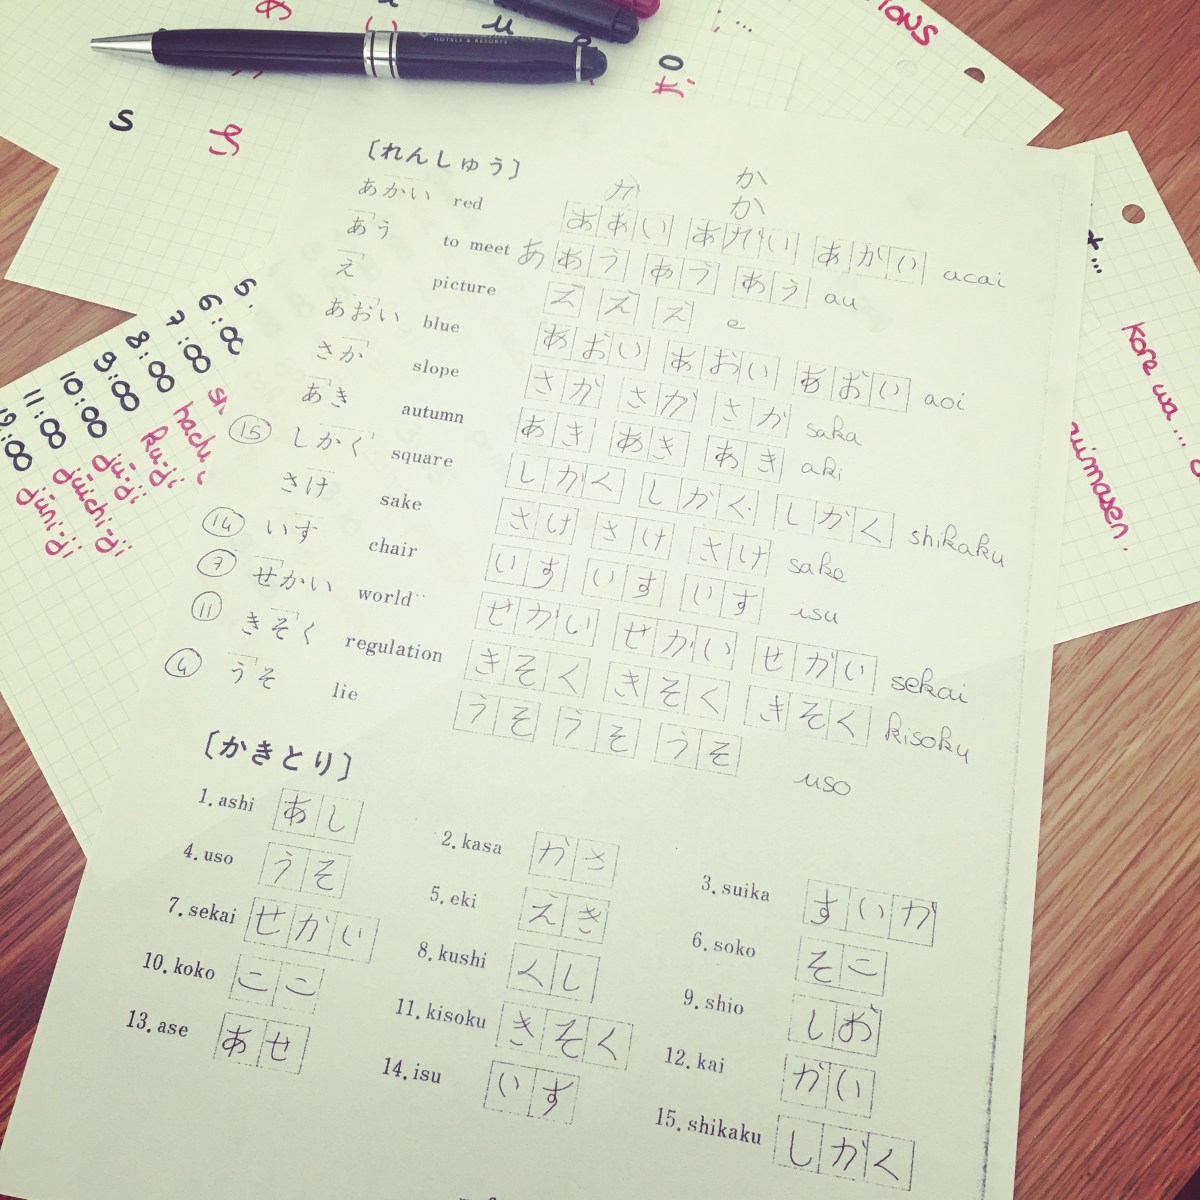 HOTELS & RESORTS
IONS
s
ち
o
お
[れんしゅう]
か か
か
あかい red ああい あかい あかい acai
あう to meet あ あう あう あう au
え picture え え え e
あおい blue あおい あおい あおい aoi
さか slope さか さか さか saka
あき autumn あき あき あき aki
15 しかく square しかく しかく しかく shikaku
さけ sake さけ さけ さけ sake
14 いす chair いす いす いす isu
7 せかい world せかい せかい せかい sekai
11 きそく regulation きそく きそく きそく kisoku
4 うそ lie うそ うそ うそ uso
[かきとり]
1. ashi あし 2. kasa かさ 3. suika すいか
4. uso うそ 5. eki えき 6. soko そこ
7. sekai せかい 8. kushi くし 9. shio しお
10. koko ここ 11. kisoku きそく 12. kai かい
13. ase あせ 14. isu いす 15. shikaku しかく
5.
6:00
7:00
8:00
9:00
10:00
11:00
hachi
ku-di
jū-di
jūichi-di
jūni-di
kore wa ...